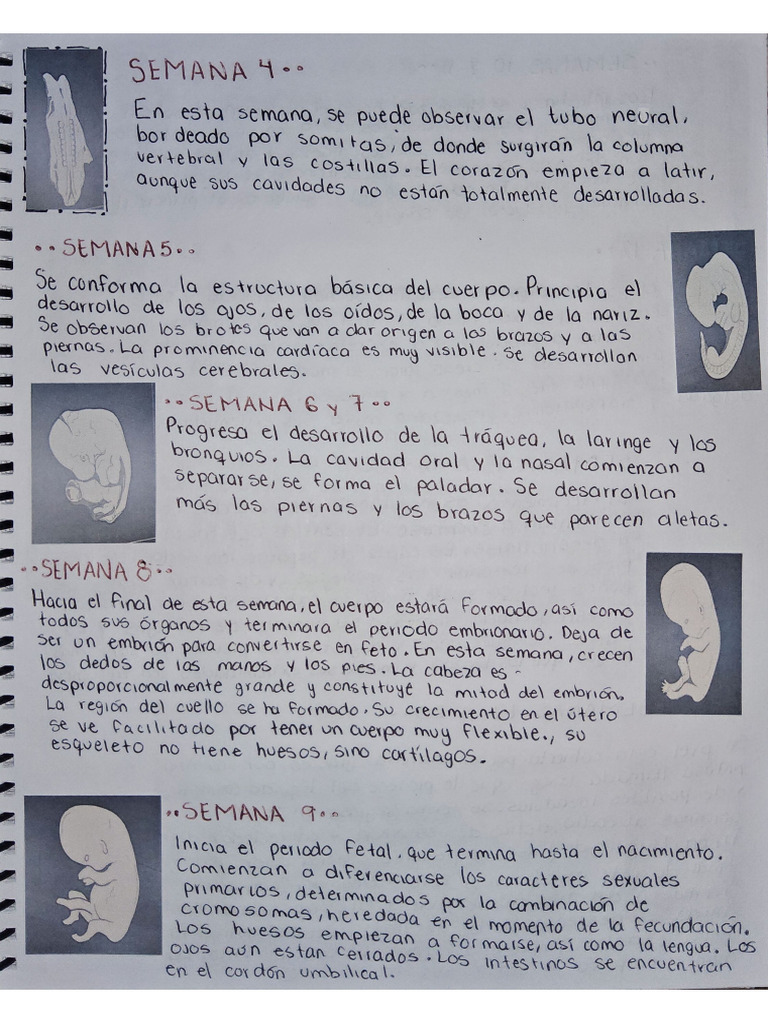 SEMANA 4..
En esta semana, se puede observar el tubo neural,
bordeado por somitas, de donde surgirán la columna
vertebral y las costillas. El corazón empieza a latir,
aunque sus cavidades no están totalmente desarrolladas.
..SEMANA 5..
Se conforma la estructura básica del cuerpo. Principia el
desarrollo de los ojos, de los oídos, de la boca y de la nariz.
Se observan los brotes que van a dar origen a los brazos y a las
piernas. La prominencia cardíaca es muy visible. Se desarrollan
las vesículas cerebrales.
..SEMANA 6 y 7..
Progresa el desarrollo de la tráquea, la laringe y los
bronquios. La cavidad oral y la nasal comienzan a
separarse, se forma el paladar. Se desarrollan
más las piernas y los brazos que parecen aletas.
..SEMANA 8..
Hacia el final de esta semana, el cuerpo estará formado, así como
todos sus órganos y terminara el periodo embrionario. Deja de
ser un embrión para convertirse en feto. En esta semana, crecen
los dedos de las manos y los pies. La cabeza es
desproporcionalmente grande y constituye la mitad del embrión.
La región del cuello se ha formado. Su crecimiento en el útero
se ve facilitado por tener un cuerpo muy flexible., su
esqueleto no tiene huesos, sino cartílagos.
..SEMANA 9..
Inicia el periodo fetal, que termina hasta el nacimiento.
Comienzan a diferenciarse los caracteres sexuales
primarios, determinados por la combinación de
cromosomas, heredada en el momento de la fecundación.
Los huesos empiezan a formarse, así como la lengua. Los
ojos aun estan cerrados. Los intestinos se encuentran
en el cordón umbilical.